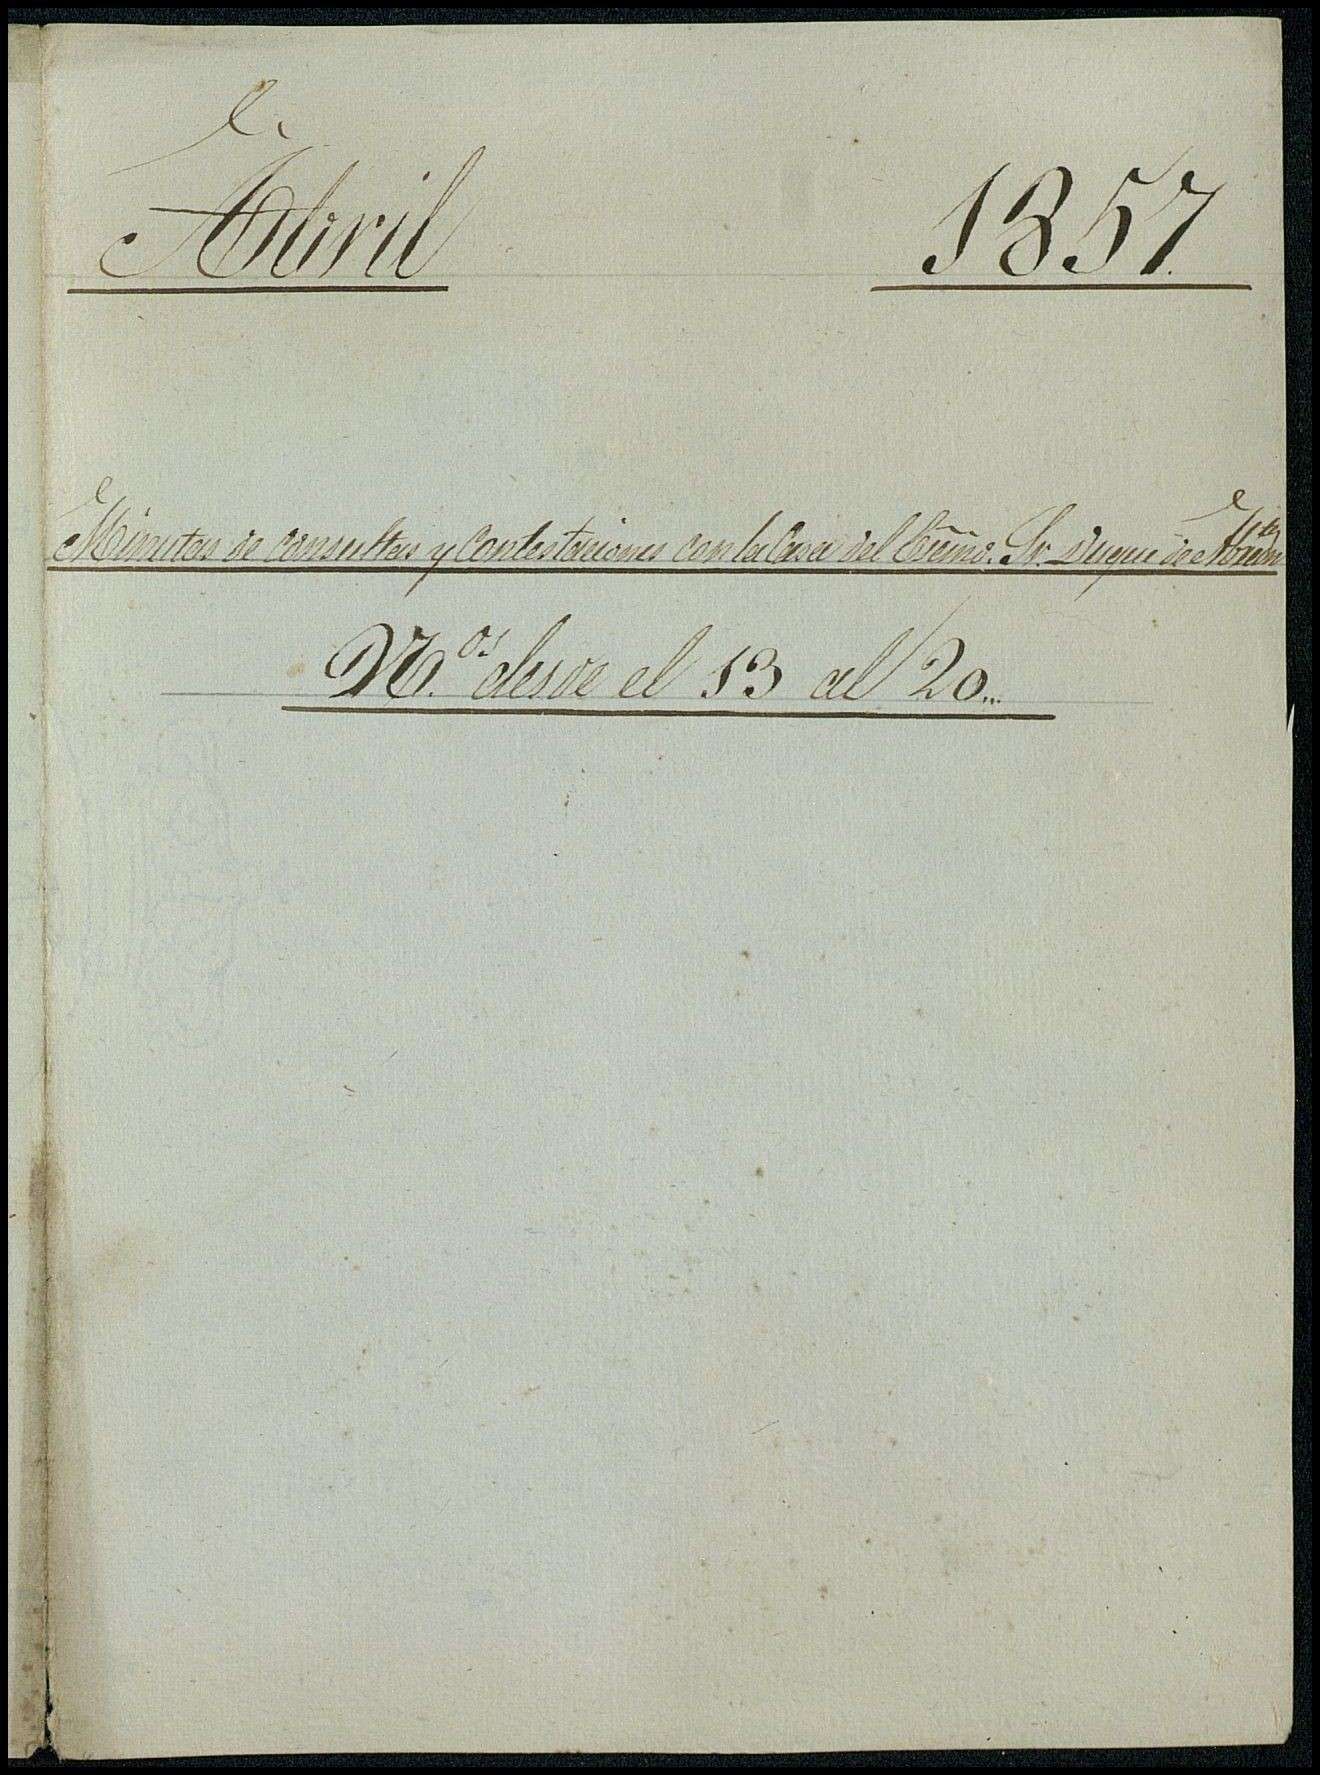 Abril 1857.
Minutas de consultas y contestaciones con la Casa del Exmo. Sr. Duque de
N.os desde el 13 al 20...